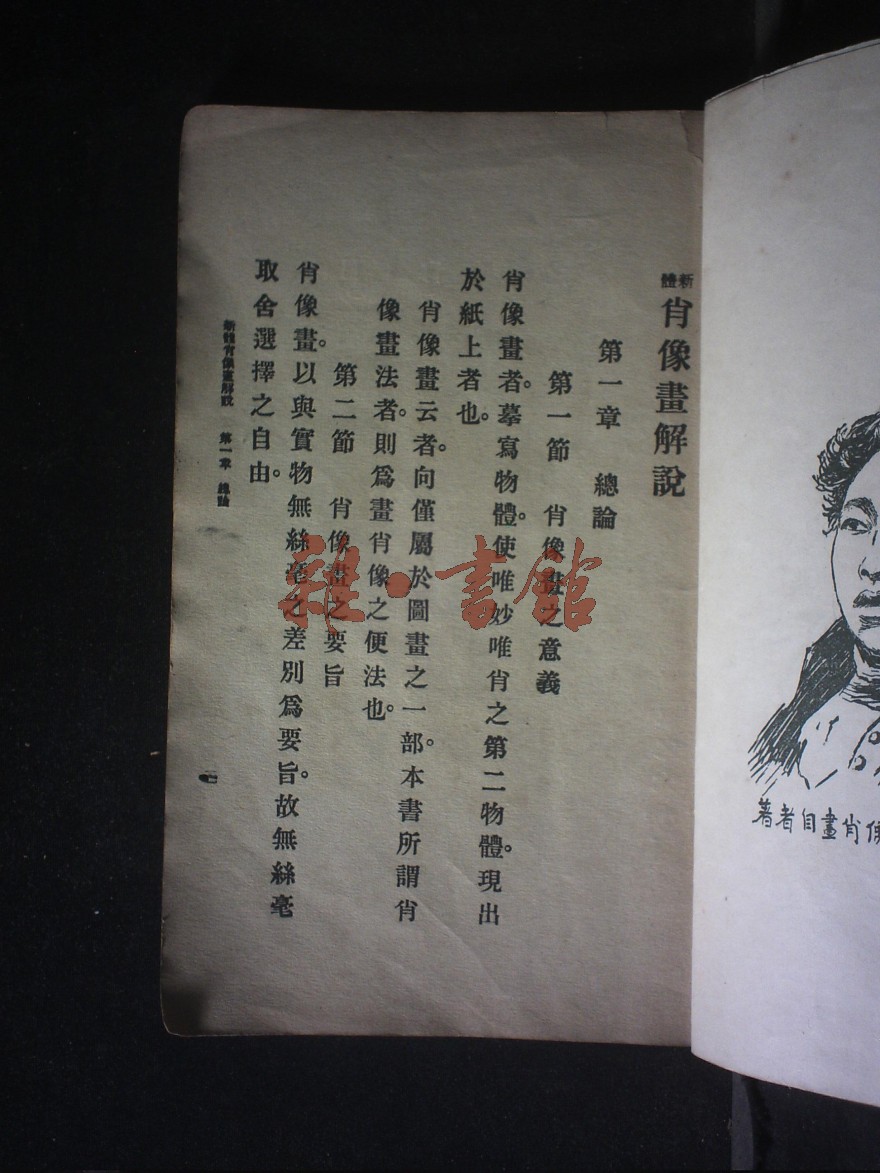 新體肖像畫解說
第一章　總論
第一節　肖像畫之意義
肖像畫者。摹寫物體。使唯妙唯肖之第二物體。現出
於紙上者也。
肖像畫云者。向僅屬於圖畫之一部。本書所謂肖
像畫法者。則爲畫肖像之便法也。
第二節　肖像畫之要旨
肖像畫。以與實物無絲毫之差別爲要旨。故無絲毫
取舍選擇之自由。
新體肖像畫解說　第一章　總論
一
著者自畫肖像
雜·書館